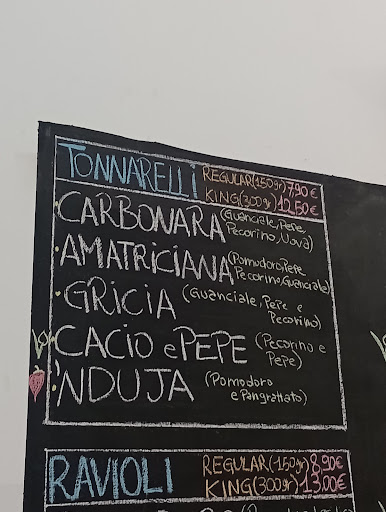 TONNARELLI REGULAR(150gr) 7,90€
KING(300gr) 12,50€
CARBONARA (Guanciale, Pepe,
Pecorino, Uova)
AMATRICIANA (Pomodoro, Pepe
Pecorino, Guanciale)
GRICIA (Guanciale, Pepe e
Pecorino)
CACIO e PEPE (Pecorino e
Pepe)
'NDUJA (Pomodoro
e Pangrattato)
RAVIOLI REGULAR(150gr) 8,90€
KING(300gr) 13,00€